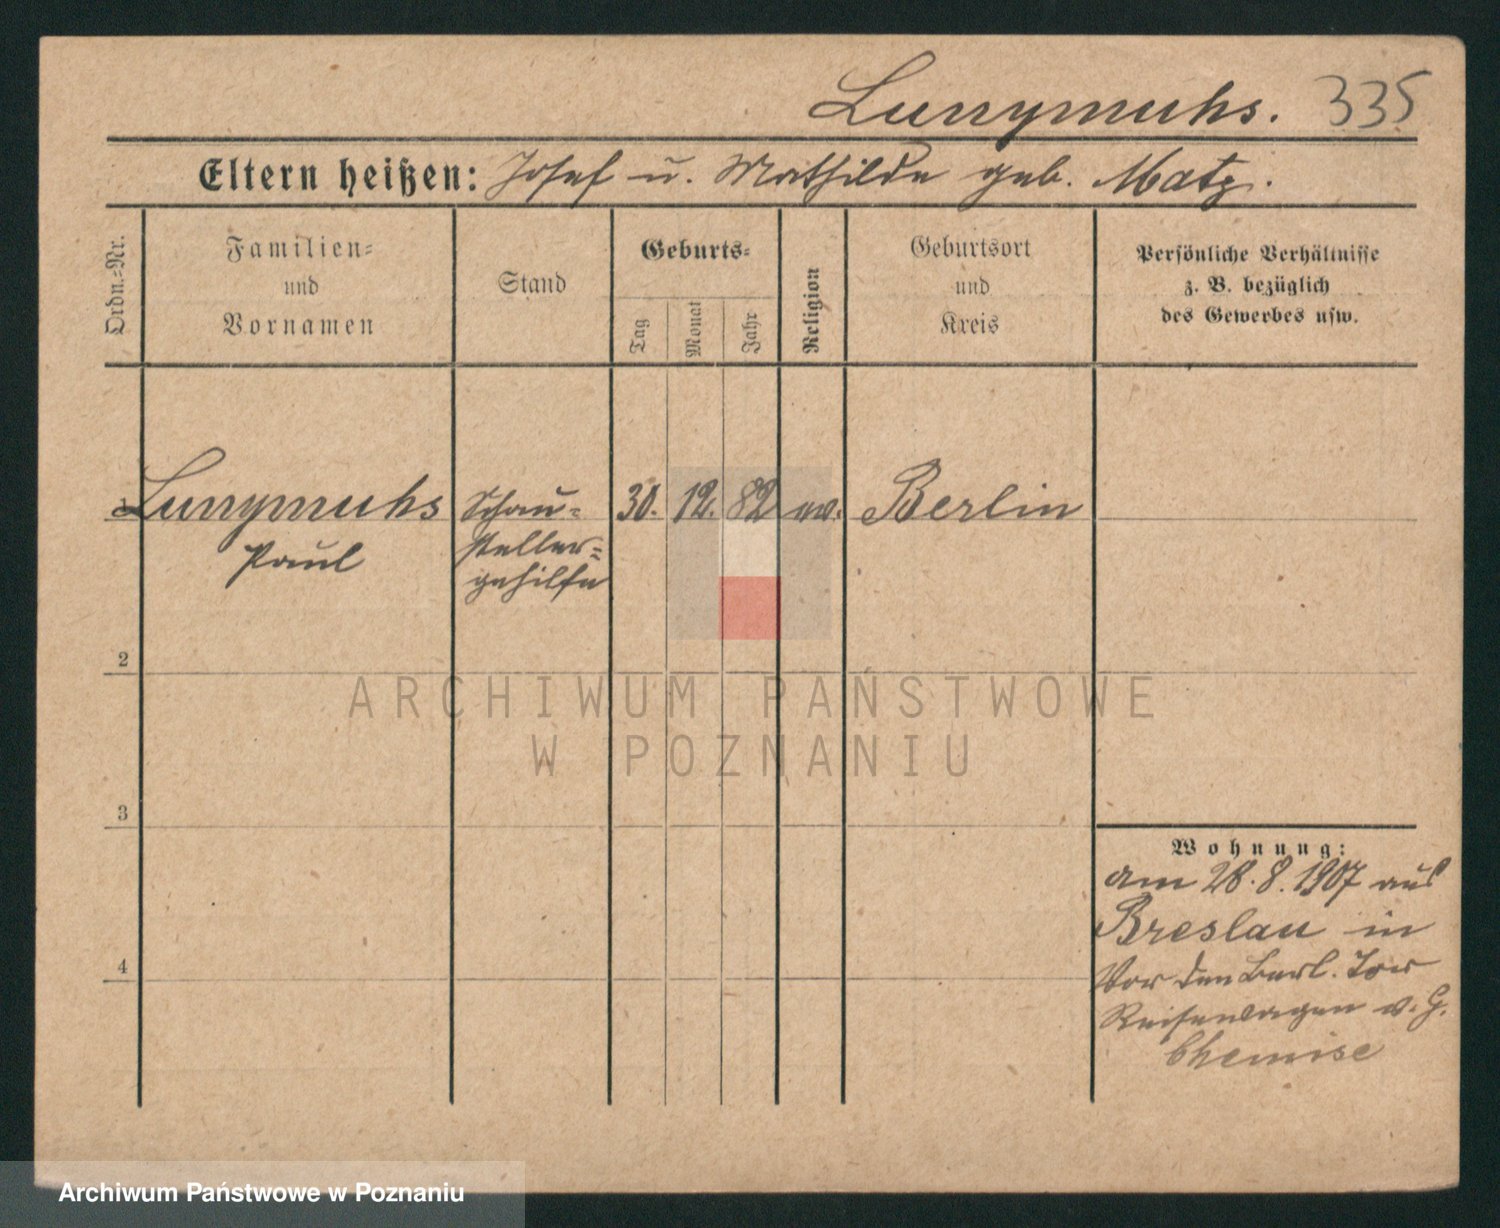 Lunnymuhs. 335
Eltern heißen: Josef u. Mathilde geb. Matz.
Ordn.=Nr.
Familien=
und
Vornamen
Stand
Geburts=
Tag
Monat
Jahr
Religion
Geburtsort
und
Kreis
Persönliche Verhältnisse
z. B. bezüglich
des Gewerbes usw.
1 Schau= 30. 12. 82 ev. Berlin
Paul
steller=
gehilfe
2
3
4
Wohnung:
am 28. 8. 1907 aus
Breslau in
Vor dem Berl. Tor
Reisewagen v. G.
Chemise
ARCHIWUM PAŃSTWOWE
W POZNANIU
Archiwum Państwowe w Poznaniu